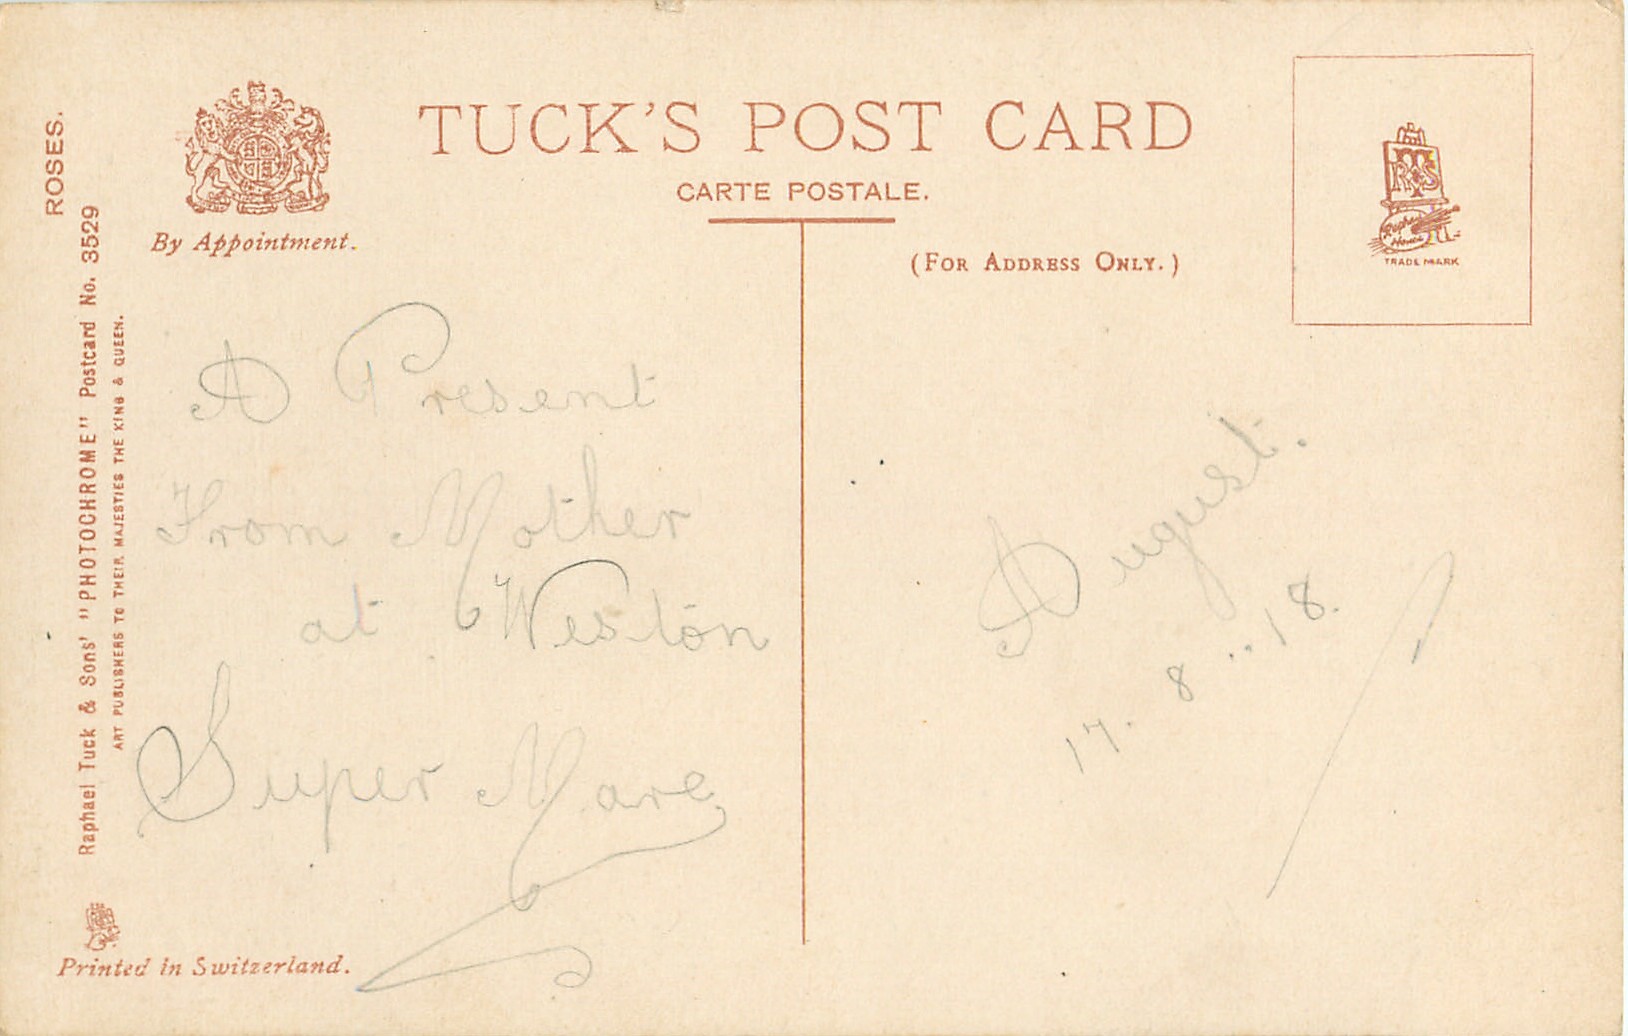 ROSES.
Raphael Tuck & Sons' "PHOTOCHROME" Postcard No. 3529
ART PUBLISHERS TO THEIR MAJESTIES THE KING & QUEEN.
By Appointment.
TUCK'S POST CARD
CARTE POSTALE.
(FOR ADDRESS ONLY.)
RTS
Raphael
House
TRADE MARK
A Present
From Mother
at Weston
Super Mare
August.
17. 8 .. 18.
Printed in Switzerland.